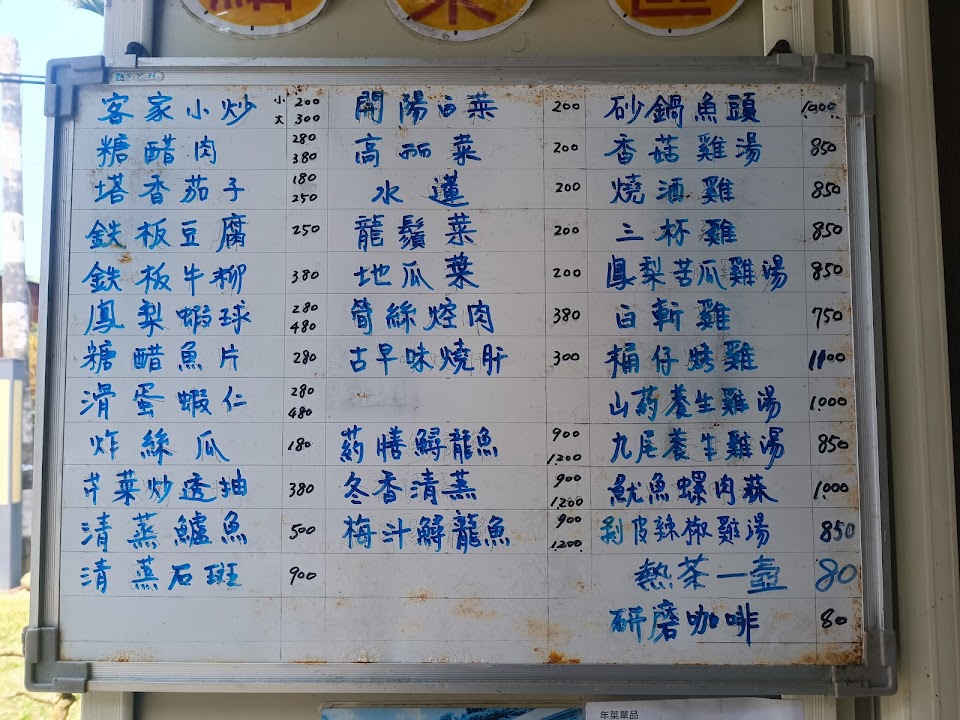 點菜區
客家小炒 小 200 大 300
糖醋肉 280 380
塔香茄子 180 250
鉄板豆腐 250
鉄板牛柳 380
鳳梨蝦球 280 480
糖醋魚片 280
滑蛋蝦仁 280 480
炸絲瓜 180
芹菜炒透抽 380
清蒸鱸魚 500
清蒸石斑 900
開陽白菜 200
高丽菜 200
水蓮 200
龍鬚菜 200
地瓜葉 200
筍絲焢肉 380
古早味燒肝 300
葯膳鱘龍魚 900 1200
冬香清蒸 900 1200
梅汁鱘龍魚 900 1200
砂鍋魚頭 1000
香菇雞湯 850
燒酒雞 850
三杯雞 850
鳳梨苦瓜雞湯 850
白斬雞 750
桶仔烤雞 1100
山葯養生雞湯 1000
九尾養生雞湯 850
魷魚螺肉蒜 1000
剝皮辣椒雞湯 850
熱茶一壼 80
研磨咖啡 80
年菜單品